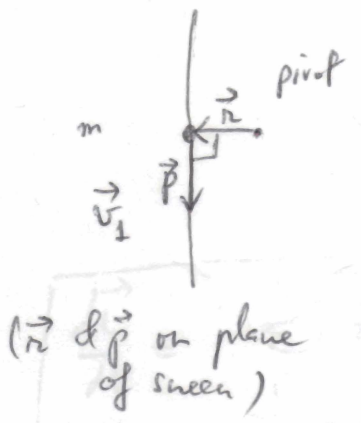 pivot
m
r⃗
p⃗
v⃗₁
(r⃗ & p⃗ on plane
of screen)